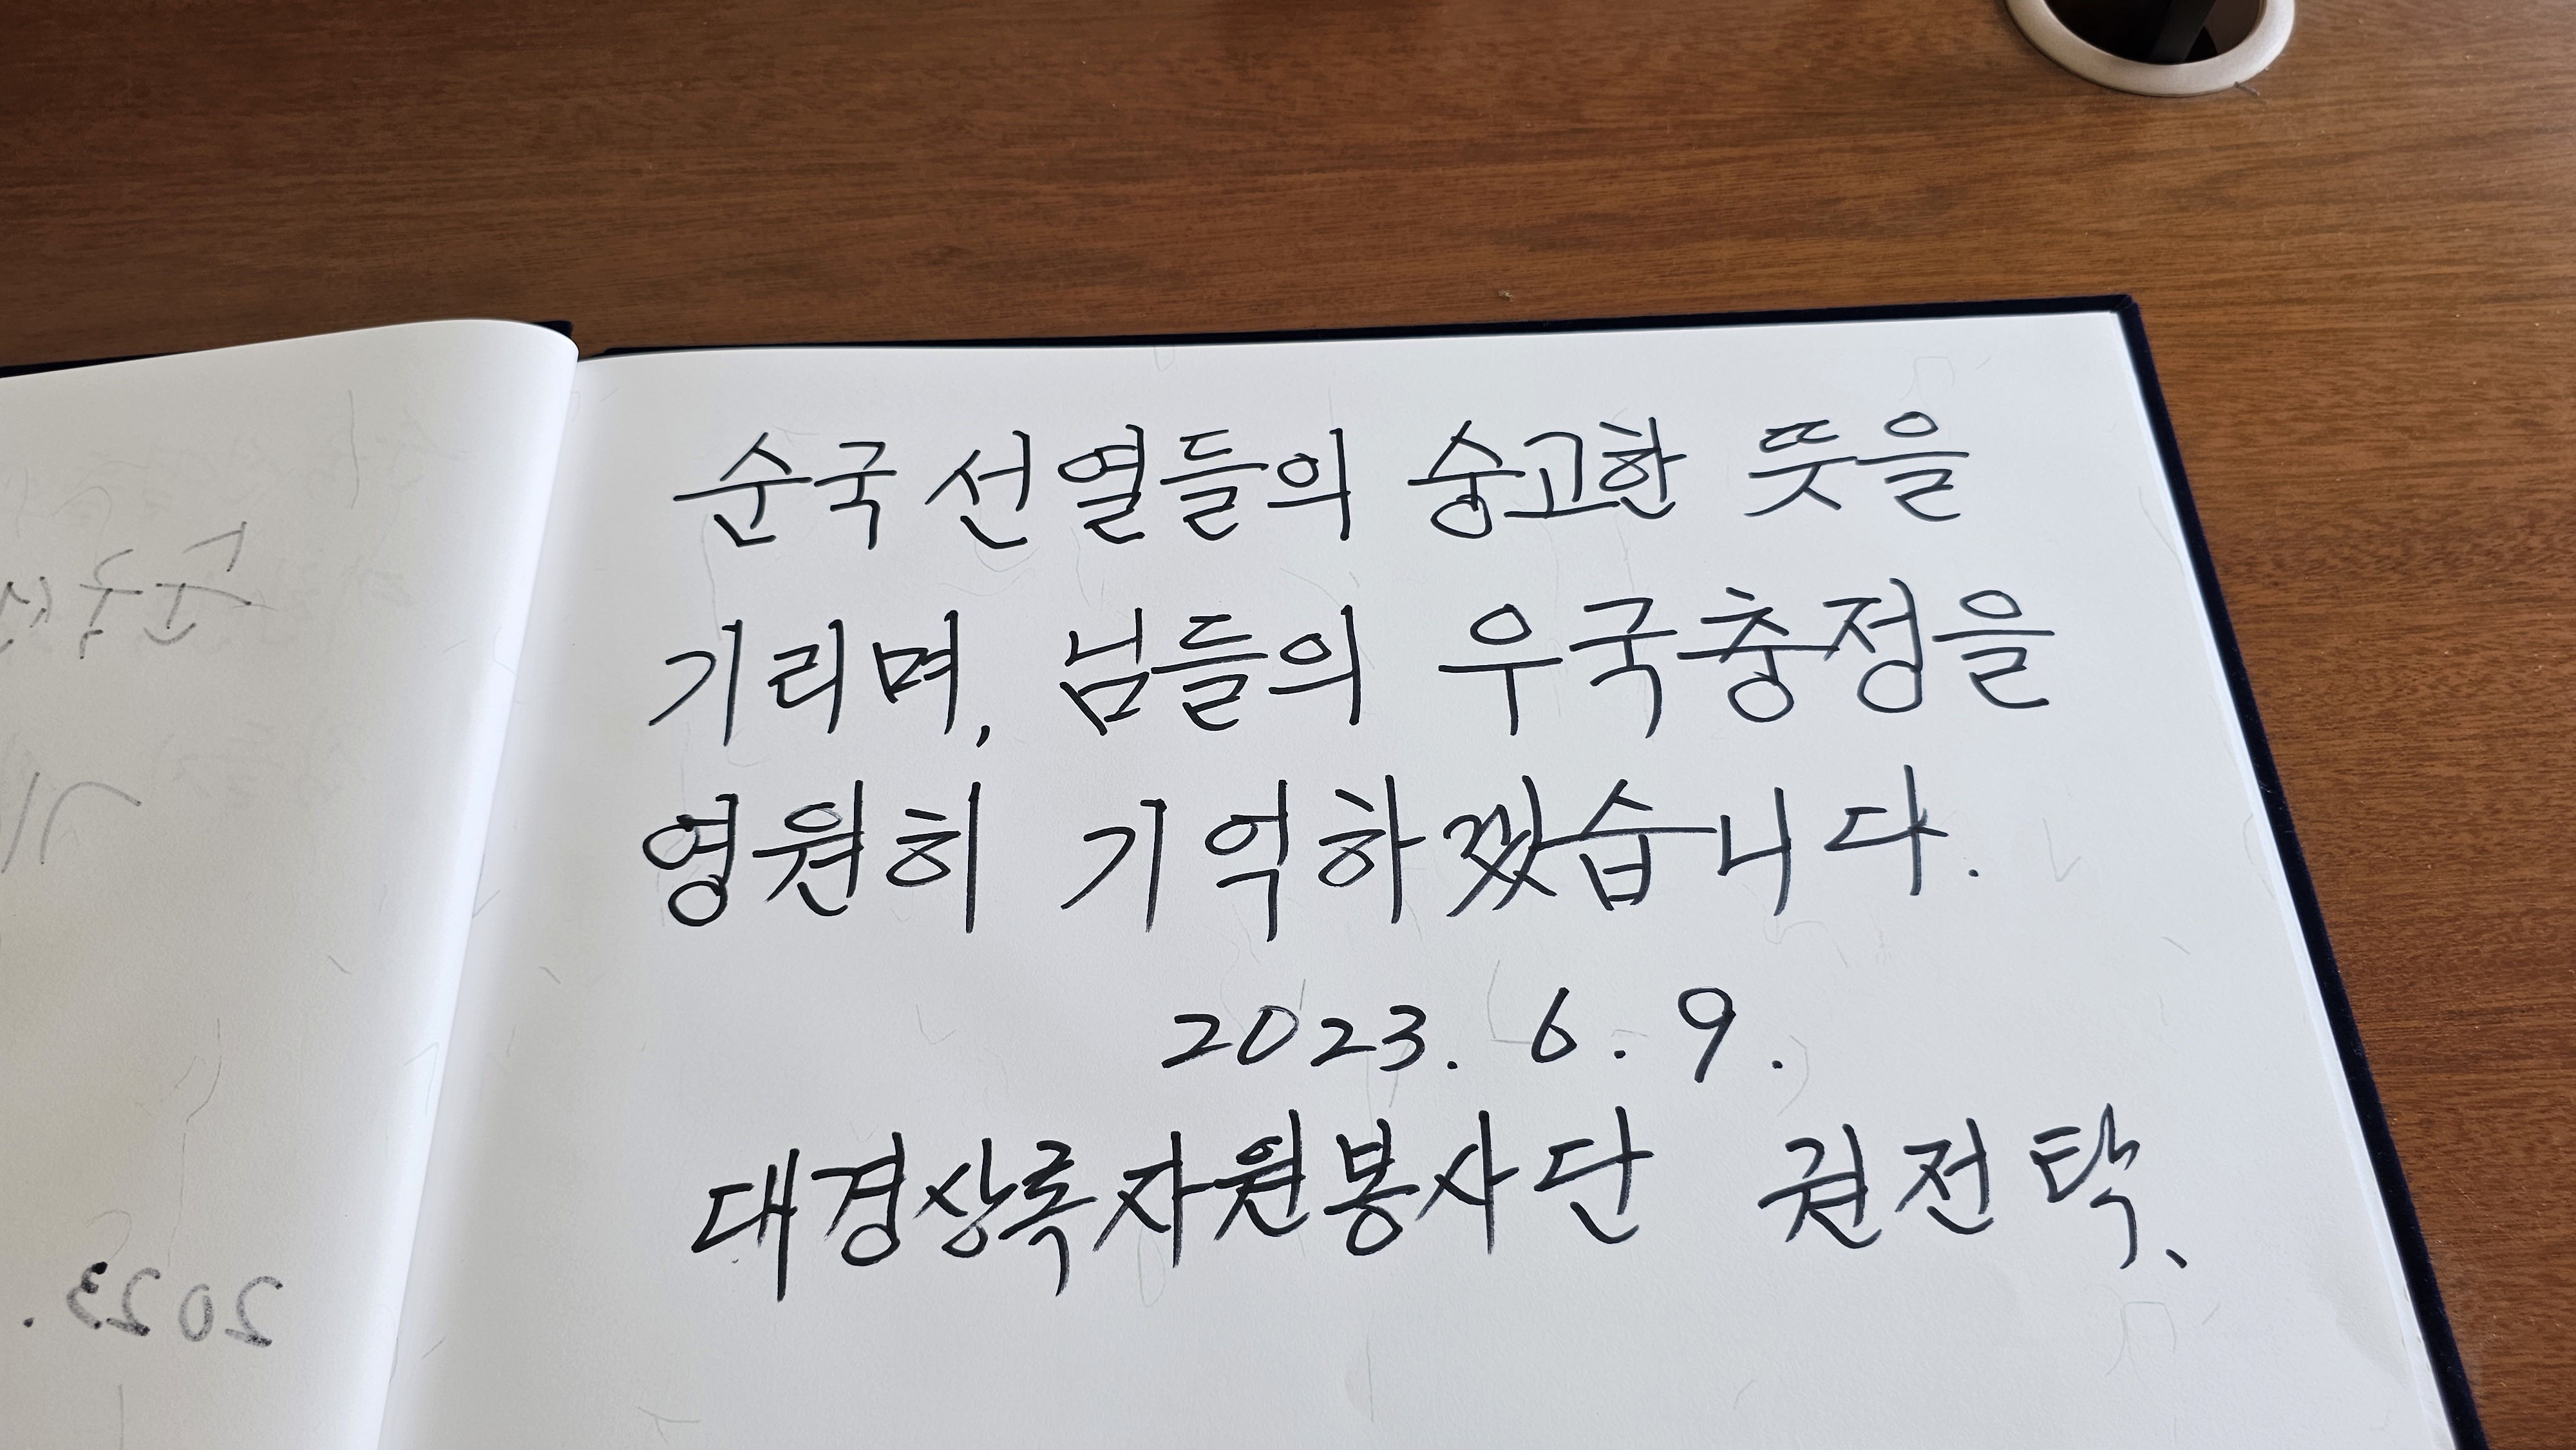 순국선열들의 숭고한 뜻을
기리며, 님들의 우국충정을
영원히 기억하겠습니다.
2023. 6. 9.
대경상록자원봉사단 권전탁.
2023.